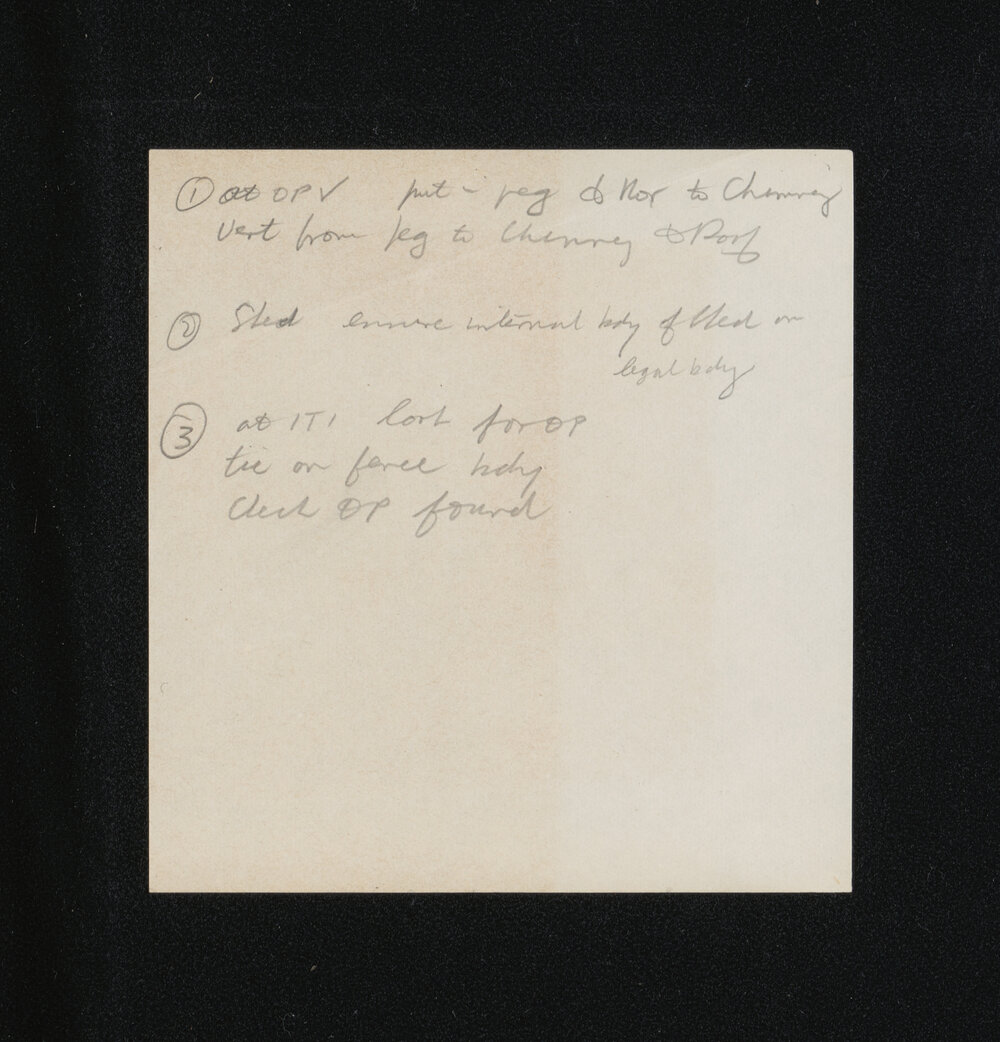 ① at OP V put - peg & Hor to Chimney
Vert from peg to Chimney & Roof
② Shed ensure internal bdy of Shed on
legal bdy
③ at IT1 look for OP
tie on fence bdy
Check OP found